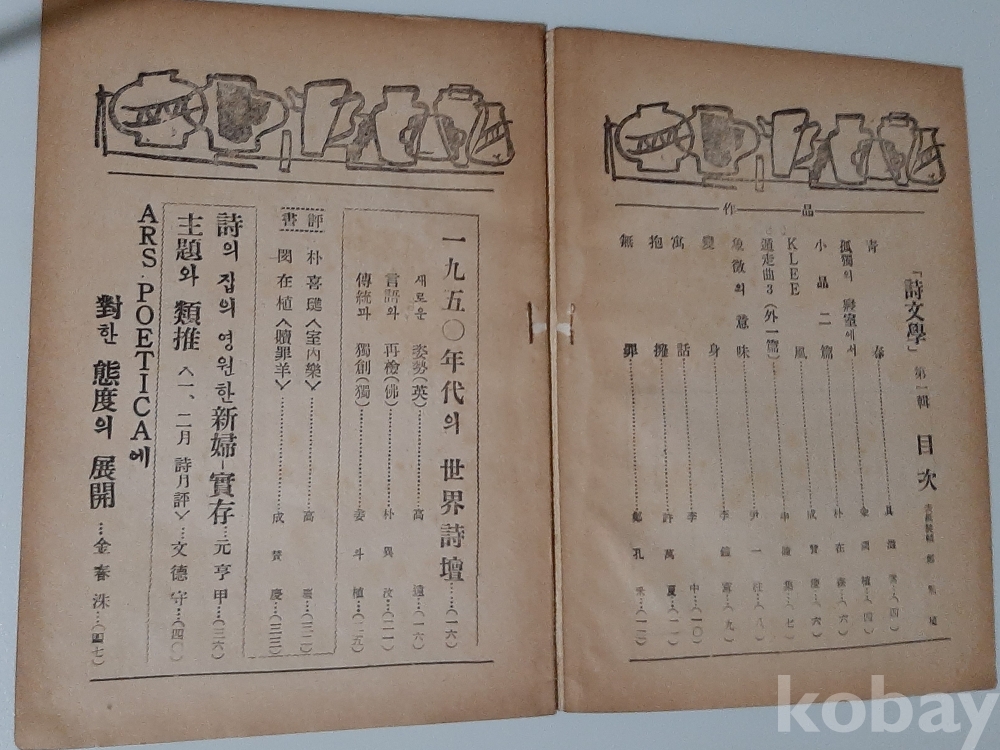 「詩文學」 第一輯 目次
作品
靑春
孤獨의 寢室에서
小品二篇 朴在森…(六)
KLEE風 成贊慶…(六)
遁走曲3(外一篇) 申瞳集…(七)
象徵의 意味 尹一柱…(八)
變身 李鍾憲…(九)
寓話 李中…(一〇)
抱擁 許萬夏…(一一)
無罪 鄭孔釆…(一二)
一九五〇年代의 世界詩壇……(一六)
새로운 姿勢(英)…高遠…(一六)
言語와 再檢(佛)…朴異汶…(二一)
傳統과 獨創(獨)…姜斗植…(二五)
書評
朴喜璡〈室內樂〉…高
閔在植〈贖罪羊〉…成賛慶…(三三)
詩의 집의 영원한 新婦–實存…元亨甲…(三六)
主題와 類推 〈一、二月 詩月評〉…文德守…(四〇)
ARS·POETICA에
對한 態度의 展開…金春洙…(四七)
kobay